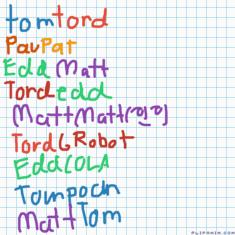 tomtord
PauPat
Edd Matt
Tordedd
MattMatt(인의)
TordGRobot
EddCOLA
Tompocin
MattTom
FLIPANIM.COM